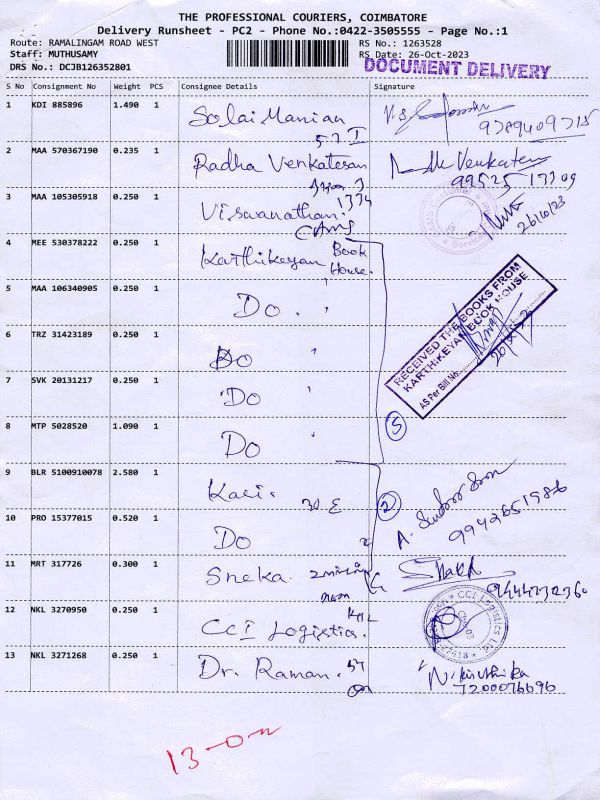 THE PROFESSIONAL COURIERS, COIMBATORE
Delivery Runsheet - PC2 - Phone No.:0422-3505555 - Page No.:1
Route: RAMALINGAM ROAD WEST RS No.: 1263528
Staff: MUTHUSAMY RS Date: 26-Oct-2023
DRS No.: DCJB126352801 DOCUMENT DELIVERY
S No Consignment No Weight PCS Consignee Details Signature
1 KDI 885896 1.490 1 Solai Manian
9789409715
2 MAA 570367190 0.235 1 Radha Venkatesan Venkaten
99525 17709
3 MAA 105305918 0.250 1 Viswanathan. 1334
CAMS 26/10/23
4 MEE 530378222 0.250 1 Karthikeyan Book
House.
5 MAA 106340905 0.250 1 Do.
RECEIVED THE BOOKS FROM
KARTHIKEYAN BOOK HOUSE
AS Per Bill No.
6 TRZ 31423189 0.250 1 Do
7 SVK 20131217 0.250 1 Do
8 MTP 5028520 1.090 1 Do 5
9 BLR 5100910078 2.580 1 Kavi. 2
10 PRO 15377015 0.520 1 Do 9942651986
11 MRT 317726 0.300 1 Sneka.
9444732360
12 NKL 3270950 0.250 1 CCI Logistics.
CCI Logistics
13 NKL 3271268 0.250 1 Dr. Raman. 57 Nikruthika
7200076696
13-0-